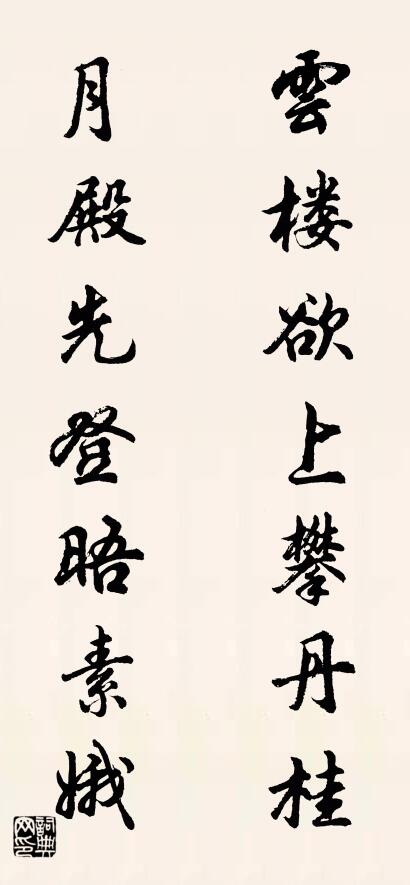 雲楼欲上攀丹桂
月殿先登晤素娥
詞典网印